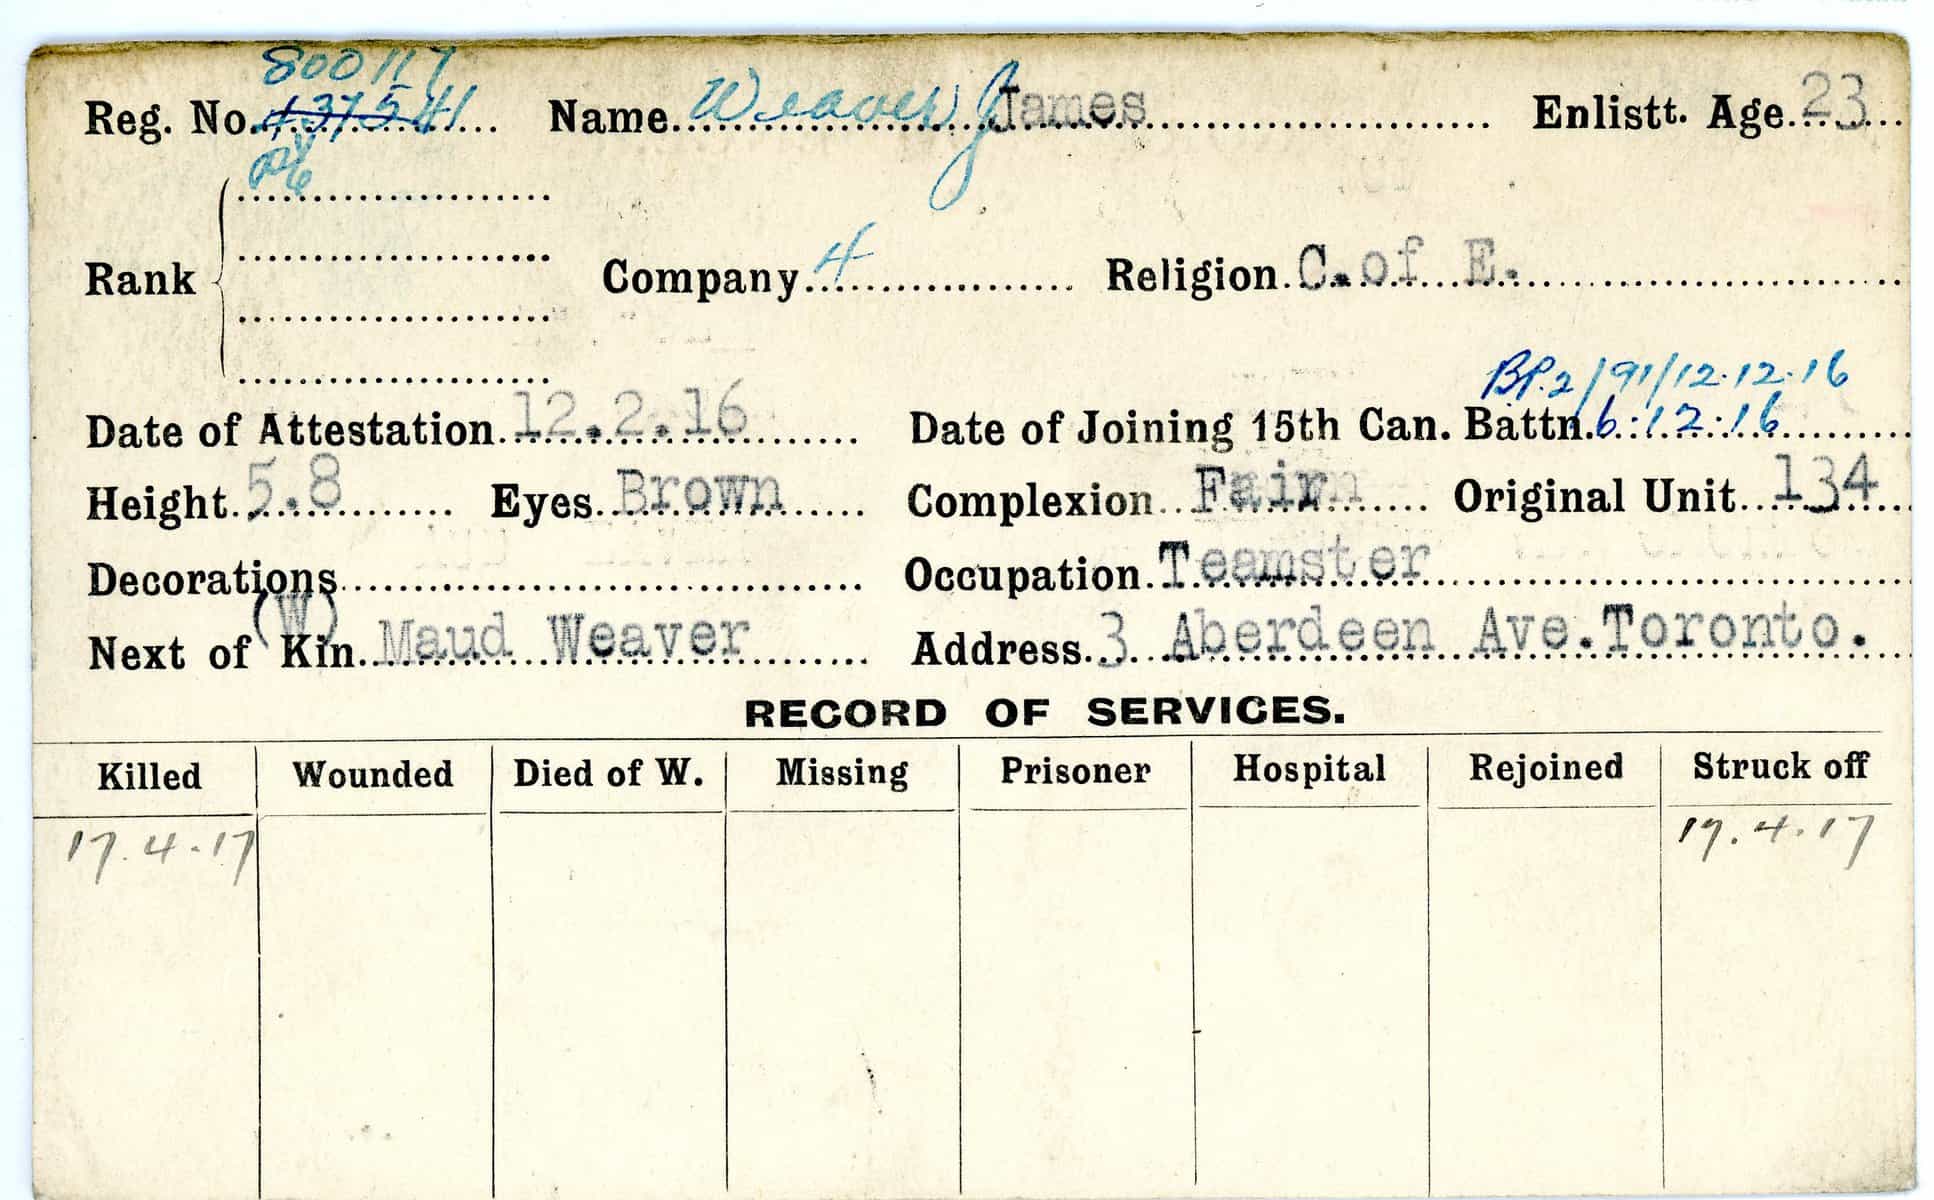 800117
Reg. No. 137541 Name Weaver J James Enlistt. Age 23
Pte
Rank Company 4 Religion C. of E.
BP.2/91/12.12.16
Date of Attestation 12.2.16 Date of Joining 15th Can. Battn. 6:12:16
Height 5.8 Eyes Brown Complexion Fair Original Unit 134
Decorations Occupation Teamster
(W)
Next of Kin Maud Weaver Address 3 Aberdeen Ave. Toronto.
RECORD OF SERVICES.
Killed Wounded Died of W. Missing Prisoner Hospital Rejoined Struck off
17.4.17 17.4.17